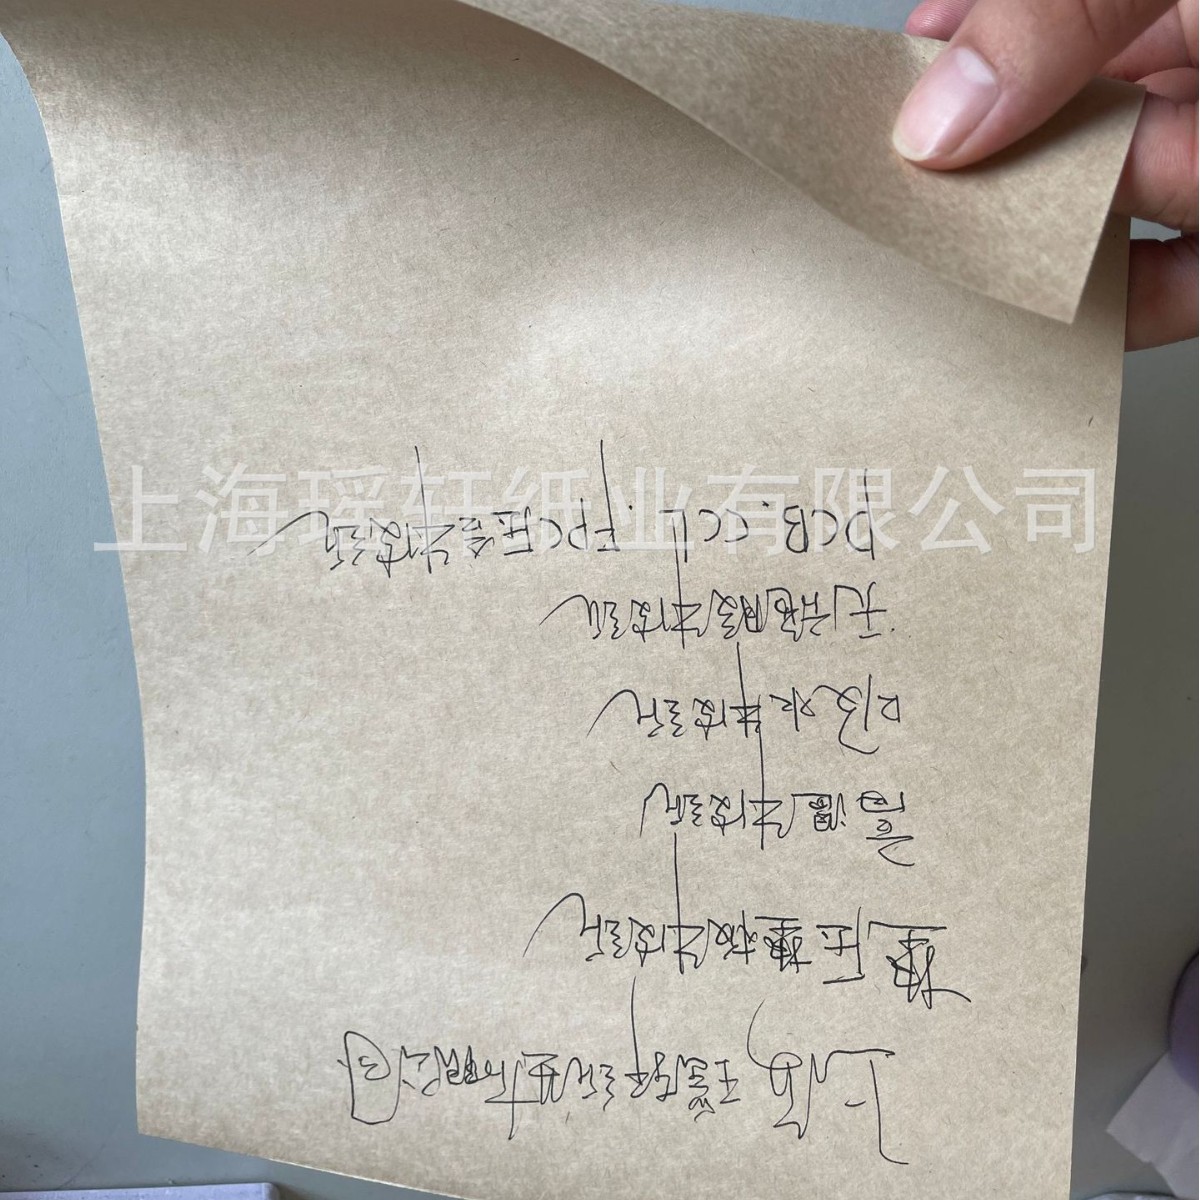 上海瑶轩纸业有限公司
上海瑶轩纸业有限公司
压板牛皮纸
高温牛皮纸
吸水牛皮纸
牛皮纸
PCB.CCL.FPC压合牛皮纸